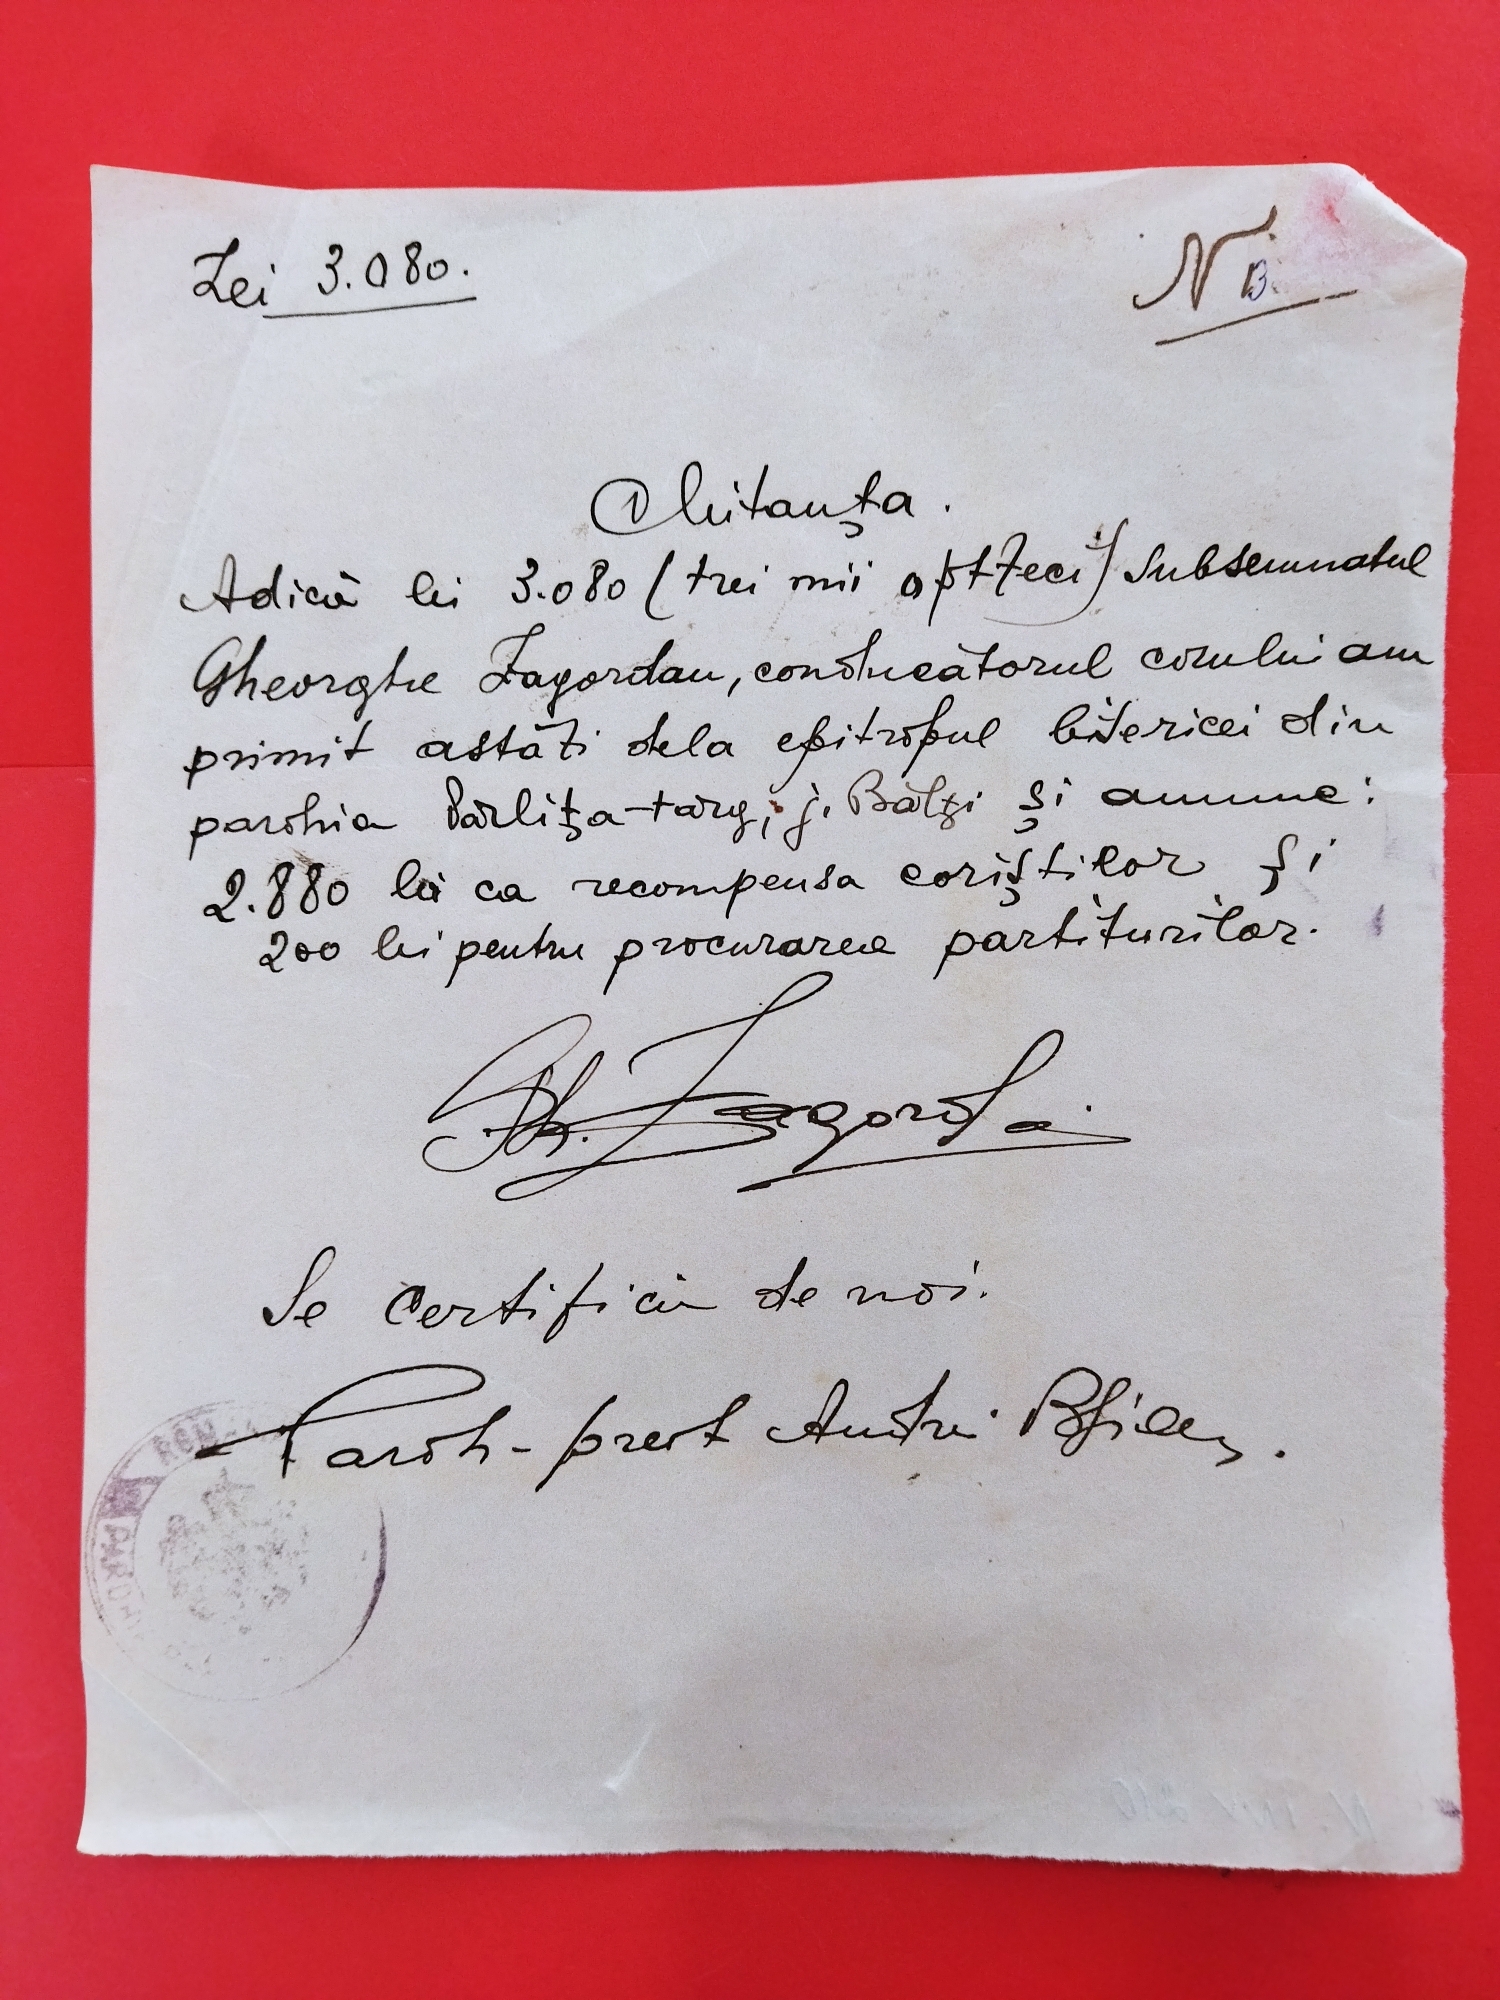 Lei 3.080.
N 13.
Chitanța.
Adică lei 3.080 (trei mii optzeci) Subsemnatul
Gheorghe Zagordan, conducătorul corului am
primit astăzi dela epitropul bisericei din
parohia Bârlița-târg, j. Bălți și anume:
2.880 lei ca recompensa coriștilor și
200 lei pentru procurarea partiturilor.
Gh. Zagorda
Se certifică de noi.
Paroh - preot Andrei
PAROHI